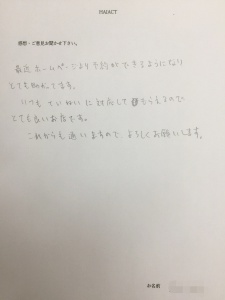 HAIACT
感想・ご意見お聞かせ下さい。
最近ホームページより予約ができるようになり
とても助かってます。
いつもていねいに対応してもらえるので
とても良いお店です。
これからも通いますのでよろしくお願いします。
お名前